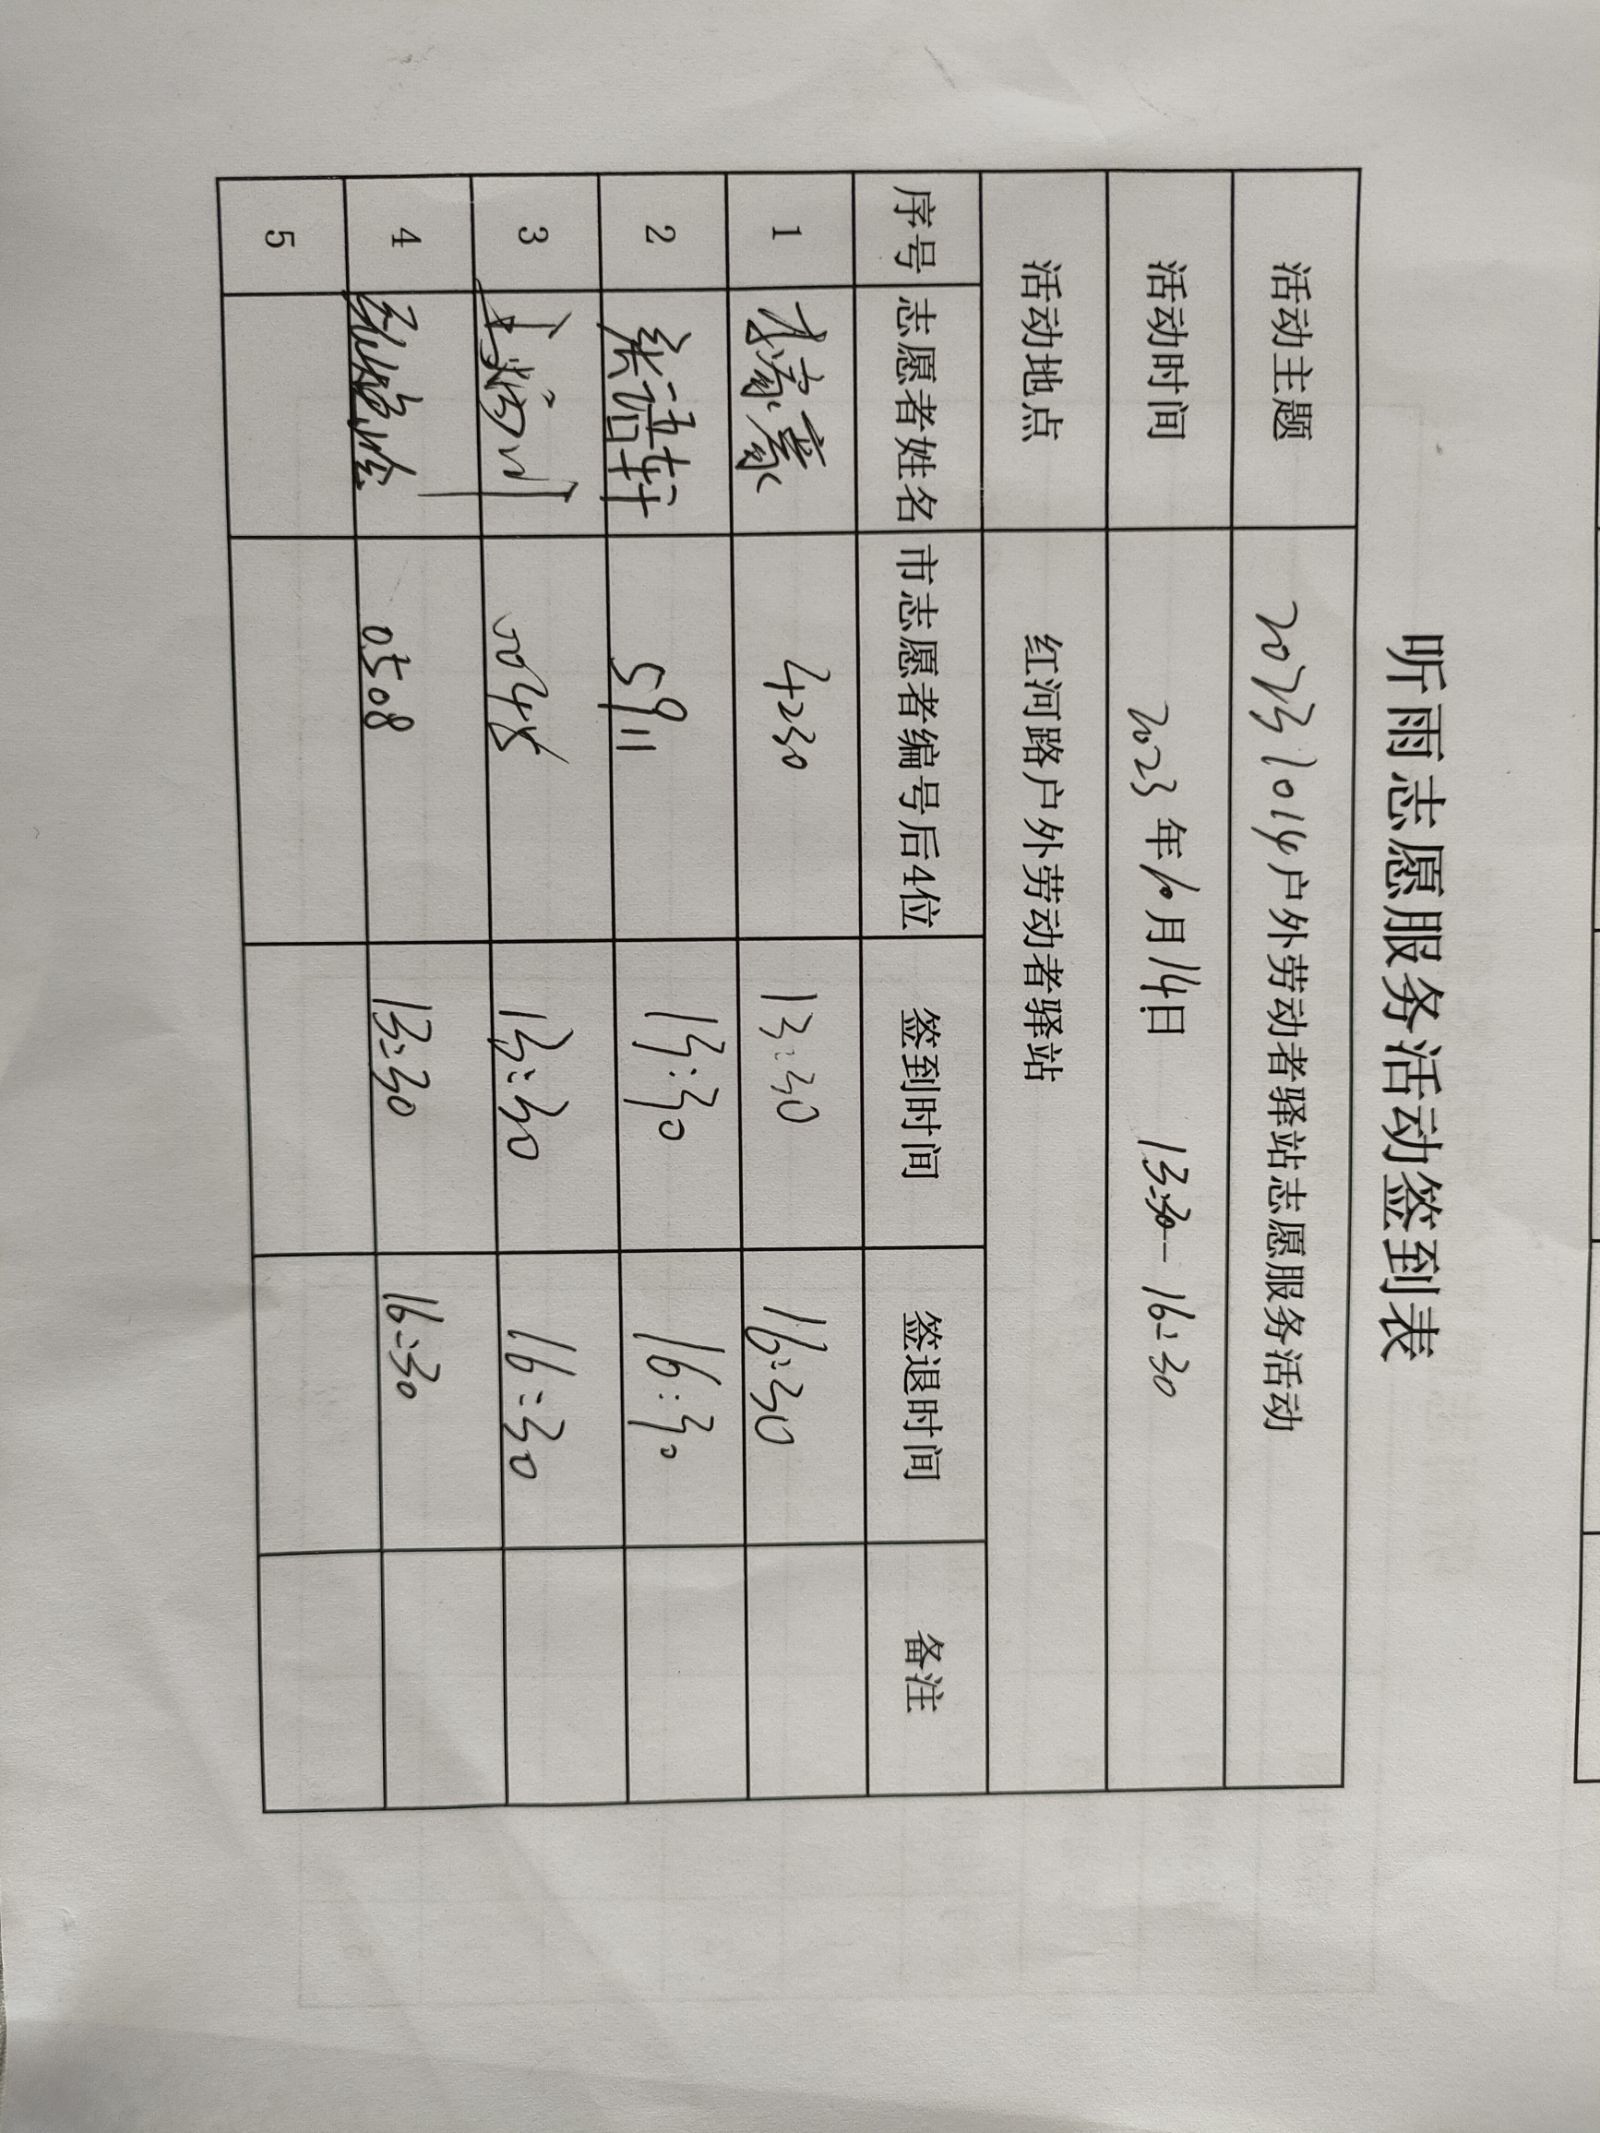 听雨志愿服务活动签到表
活动主题 20231014户外劳动者驿站志愿服务活动
活动时间 2023年10月14日 13:30—16:30
活动地点 红河路户外劳动者驿站
序号 志愿者姓名 市志愿者编号后4位 签到时间 签退时间 备注
1 4230 13:30 16:30
2 张语轩 5911 13:30 16:30
3 13:30 16:30
4 0508 13:30 16:30
5